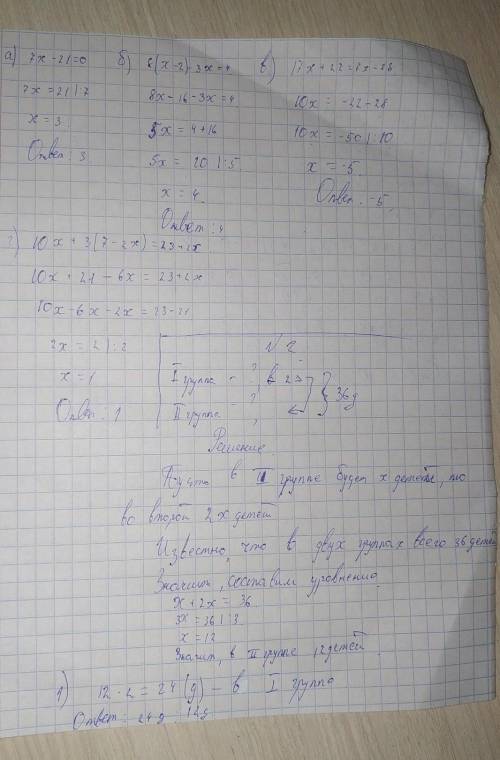 а) 7x - 21 = 0
7x = 21 | : 7
x = 3
Ответ: 3
б) 8(x-2) - 3x = 4
8x - 16 - 3x = 4
5x = 4 + 16
5x = 20 | : 5
x = 4
Ответ: 4
в) 17x + 22 = 7x - 28
10x = -22 - 28
10x = -50 | : 10
x = -5
Ответ: -5
г) 10x + 3(7 - 2x) = 23 + 2x
10x + 21 - 6x = 23 + 2x
10x - 6x - 2x = 23 - 21
2x = 2 | : 2
x = 1
Ответ: 1
√ 2
I группа - ?, в 2 > } 36 д
II группа - ?
Решение
Пусть в II группе будет x детей, то
во второй 2x детей
Известно, что в двух группах всего 36 детей
Значит, составим уравнение
x + 2x = 36
3x = 36 | : 3
x = 12
Значит, в II группе 12 детей
1) 12 · 2 = 24 (д) - в I группа
Ответ: 24 д 12 д